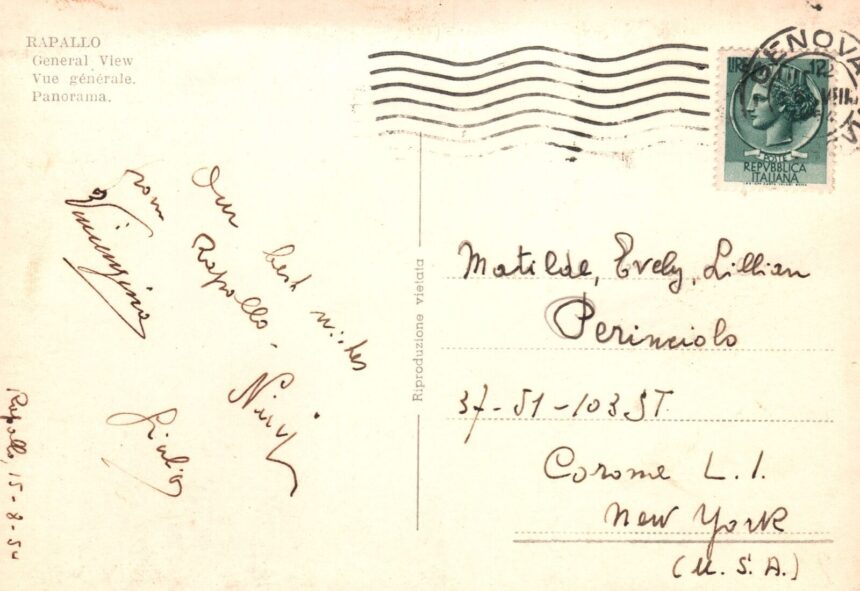 RAPALLO
General View
Vue générale.
Panorama.
Our best wishes
from Rapallo -
Vincenzina
Giulia
Rapallo, 15-8-54
Riproduzione vietata
GENOVA
LIRE 12
POSTE
REPVBBLICA
ITALIANA
Matilde, Evely, Lillian
Perinciolo
37-51-103 ST
Corome L. I.
New York
(U. S. A.)